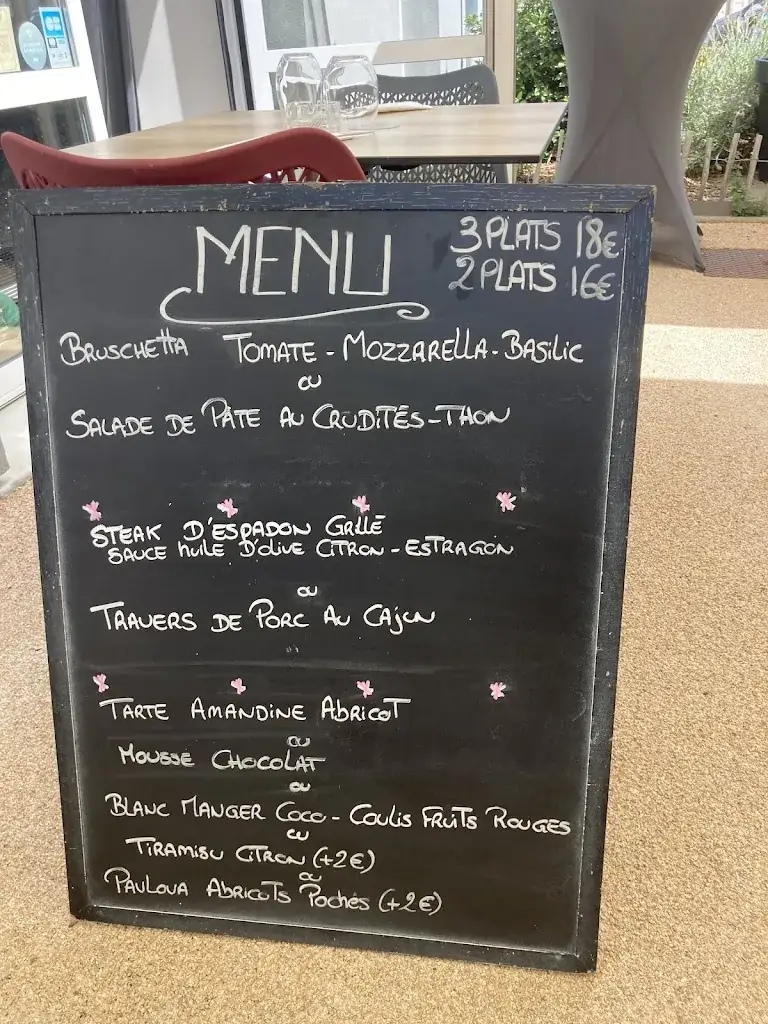 MENU
3 PLATS 18€
2 PLATS 16€
BRUSCHETTA TOMATE - MOZZARELLA - BASILIC
OU
SALADE DE PÂTE AU CRUDITÉS - THON
STEAK D'ESPADON GRILLÉ
SAUCE HUILE D'OLIVE CITRON - ESTRAGON
OU
TRAVERS DE PORC AU CAJUN
TARTE AMANDINE ABRICOT
OU
MOUSSE CHOCOLAT
OU
BLANC MANGER COCO - COULIS FRUITS ROUGES
OU
TIRAMISU CITRON (+2€)
OU
PAVLOVA ABRICOTS POCHÉS (+2€)